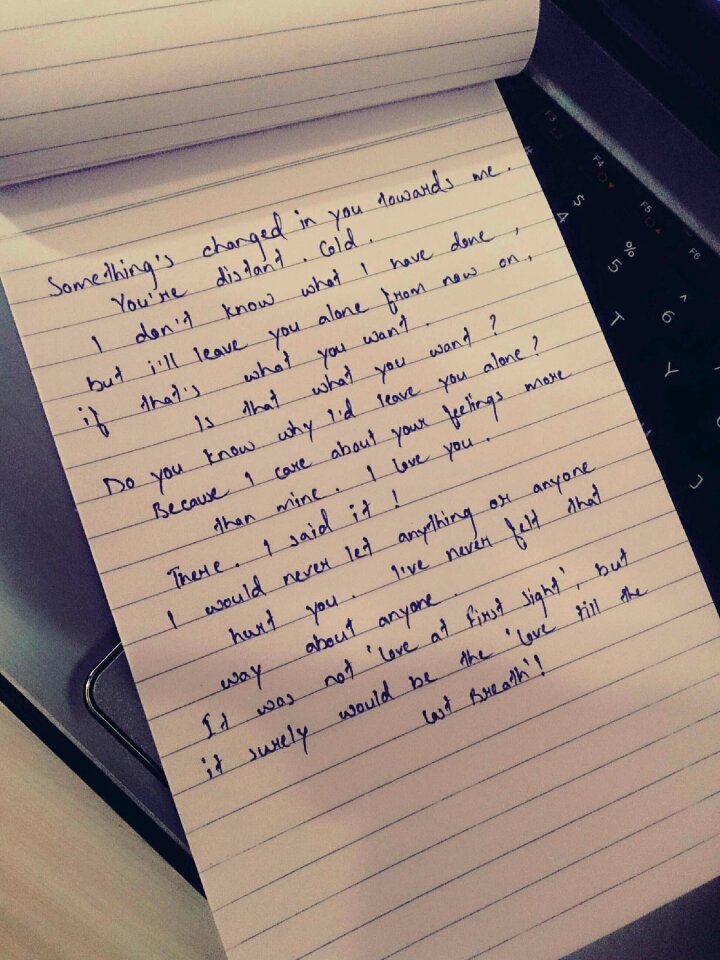 Something's changed in you towards me.
You're distant. Cold.
I don't know what I have done,
but i'll leave you alone from now on,
if that's what you want.
Is that what you want?
Do you know why I'd leave you alone?
Because I care about your feelings more
than mine. I love you.
There. I said it!
I would never let anything or anyone
hurt you. I've never felt that
way about anyone.
It was not 'love at first sight', but
it surely would be the 'love till the
last Breath'!
F3
F4
F5
F6
#
$
4
%
5
^
6
T
Y
J